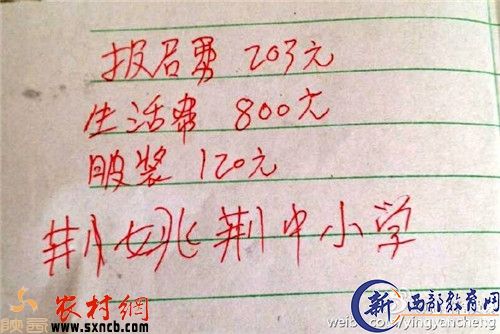 报名费 203元
生活费 800元
服装 120元
荆姚荆中小学
陕西
农村網
www.sxncb.com
新 西部教育网
weibo.com/yingyancheng